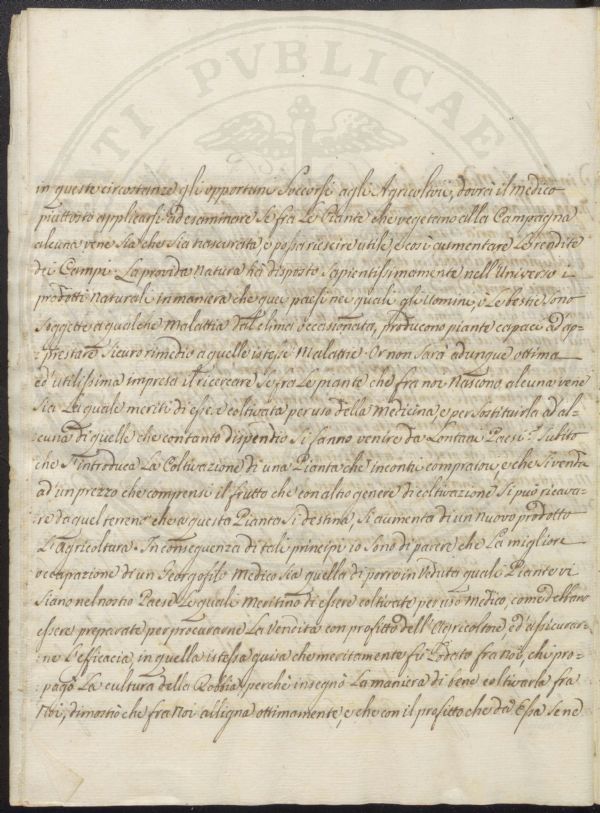 TI PVBLICAE
in queste circostanze gli opportuni Soccorsi agli Agricoltori, dovrà il medico
piuttosto applicarsi ad esaminare Se fra Le Piante che vegetano alla Campagna
alcuna vene Sia che Sia trascurata e possa riescire utile, e così aumentare Le rendite
dei Campi. La provida Natura hà disposto Sapientissimamente nell'Universo i
prodotti Naturali in maniera che quei paesi nei quali gli Uomini, ò Le bestie Sono
Soggette a qualche Malattia dal clima occasionata, producono piante capaci d'ap-
prestare Sicuro rimedio a quelle istesse Malattie. Or non Sarà adunque ottima
ed'utilissima impresa il ricercare Se fra Le piante che fra noi Nascono alcuna vene
Sia La quale meriti di essere coltivata per uso della Medicina e per Sostituirla ad al-
cuna di quelle che con tanto dispendio Si fanno venire da Lontani Paesi? Subito
che S'introduca La Coltivazione di una Pianta che incontri compratori, e che Si venda
ad'un prezzo che compensi il frutto che con altro genere di coltivazione Si può ricava-
re da quel terreno che a questa Pianta Si destina, Si aumenta di un nuovo prodotto
L'agricoltura. In conseguenza di tali principj io Sono di parere che La migliore
occupazione di un Georgofilo Medico Sia quella di porre in Veduta quali Piante vi
Siano nel nostro Paese Le quali Meritino di essere coltivate per uso Medico, come debbano
essere preparate per procurarne La Vendita con profitto dell'Agricoltore ed'assicurar-
ne L'efficacia, in quella istessa guisa che meritamente fù Lodato fra Noi, chi pro-
pagò La cultura della Robbia, perchè insegnò La maniera di bene coltivarla fra
Noi, dimostrò che fra Noi alligna ottimamente, e che con il profitto che da Essa Se ne